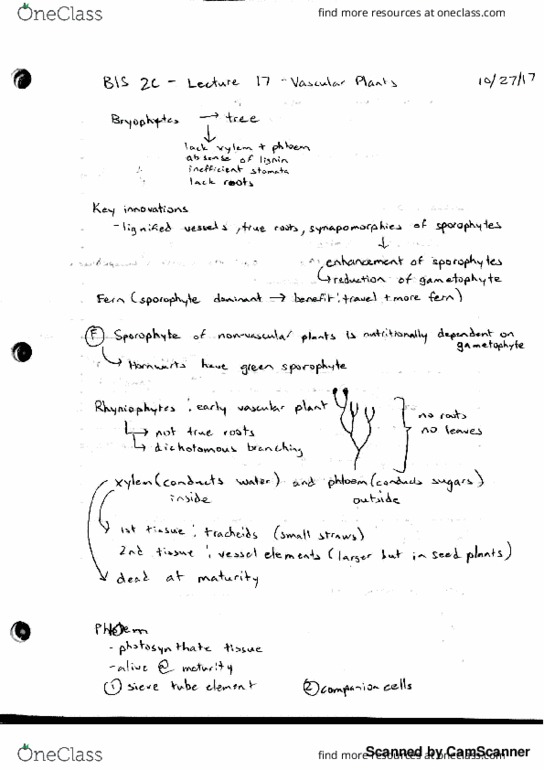 OneClass
find more resources at oneclass.com
BIS 2C - Lecture 17 - Vascular Plants 10/27/17
Bryophytes → tree
↓
lack xylem + phloem
absense of lignin
inefficient stomata
lack roots
Key innovations
- lignified vessels, true roots, synapomorphies of sporophytes
↓
enhancement of sporophytes
↳ reduction of gametophyte
Fern (sporophyte dominant → benefit: travel + more fern)
F Sporophyte of non-vascular plants is nutritionally dependent on
gametophyte
↳ Hornwarts have green sporophyte
Rhyniophytes: early vascular plant
↳ not true roots
↳ dichotomous branching
no roots
no leaves
xylem (conducts water) and phloem (conducts sugars)
inside outside
1st tissue: tracheids (small straws)
2nd tissue: vessel elements (larger but in seed plants)
dead at maturity
Phloem
- photosynthate tissue
- alive @ maturity
① sieve tube element ② companion cells
OneClass
find more resources at oneclass.com
Scanned by CamScanner